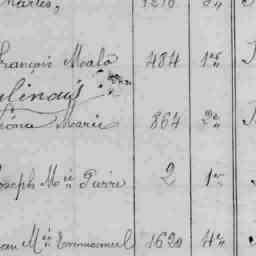 Charles, 1218 2e
François Malo 484 1re
linais
Léona Marie 864 2e
Joseph Mie Pierre 2 1re
Jean Mie Emmanuel 1620 4e